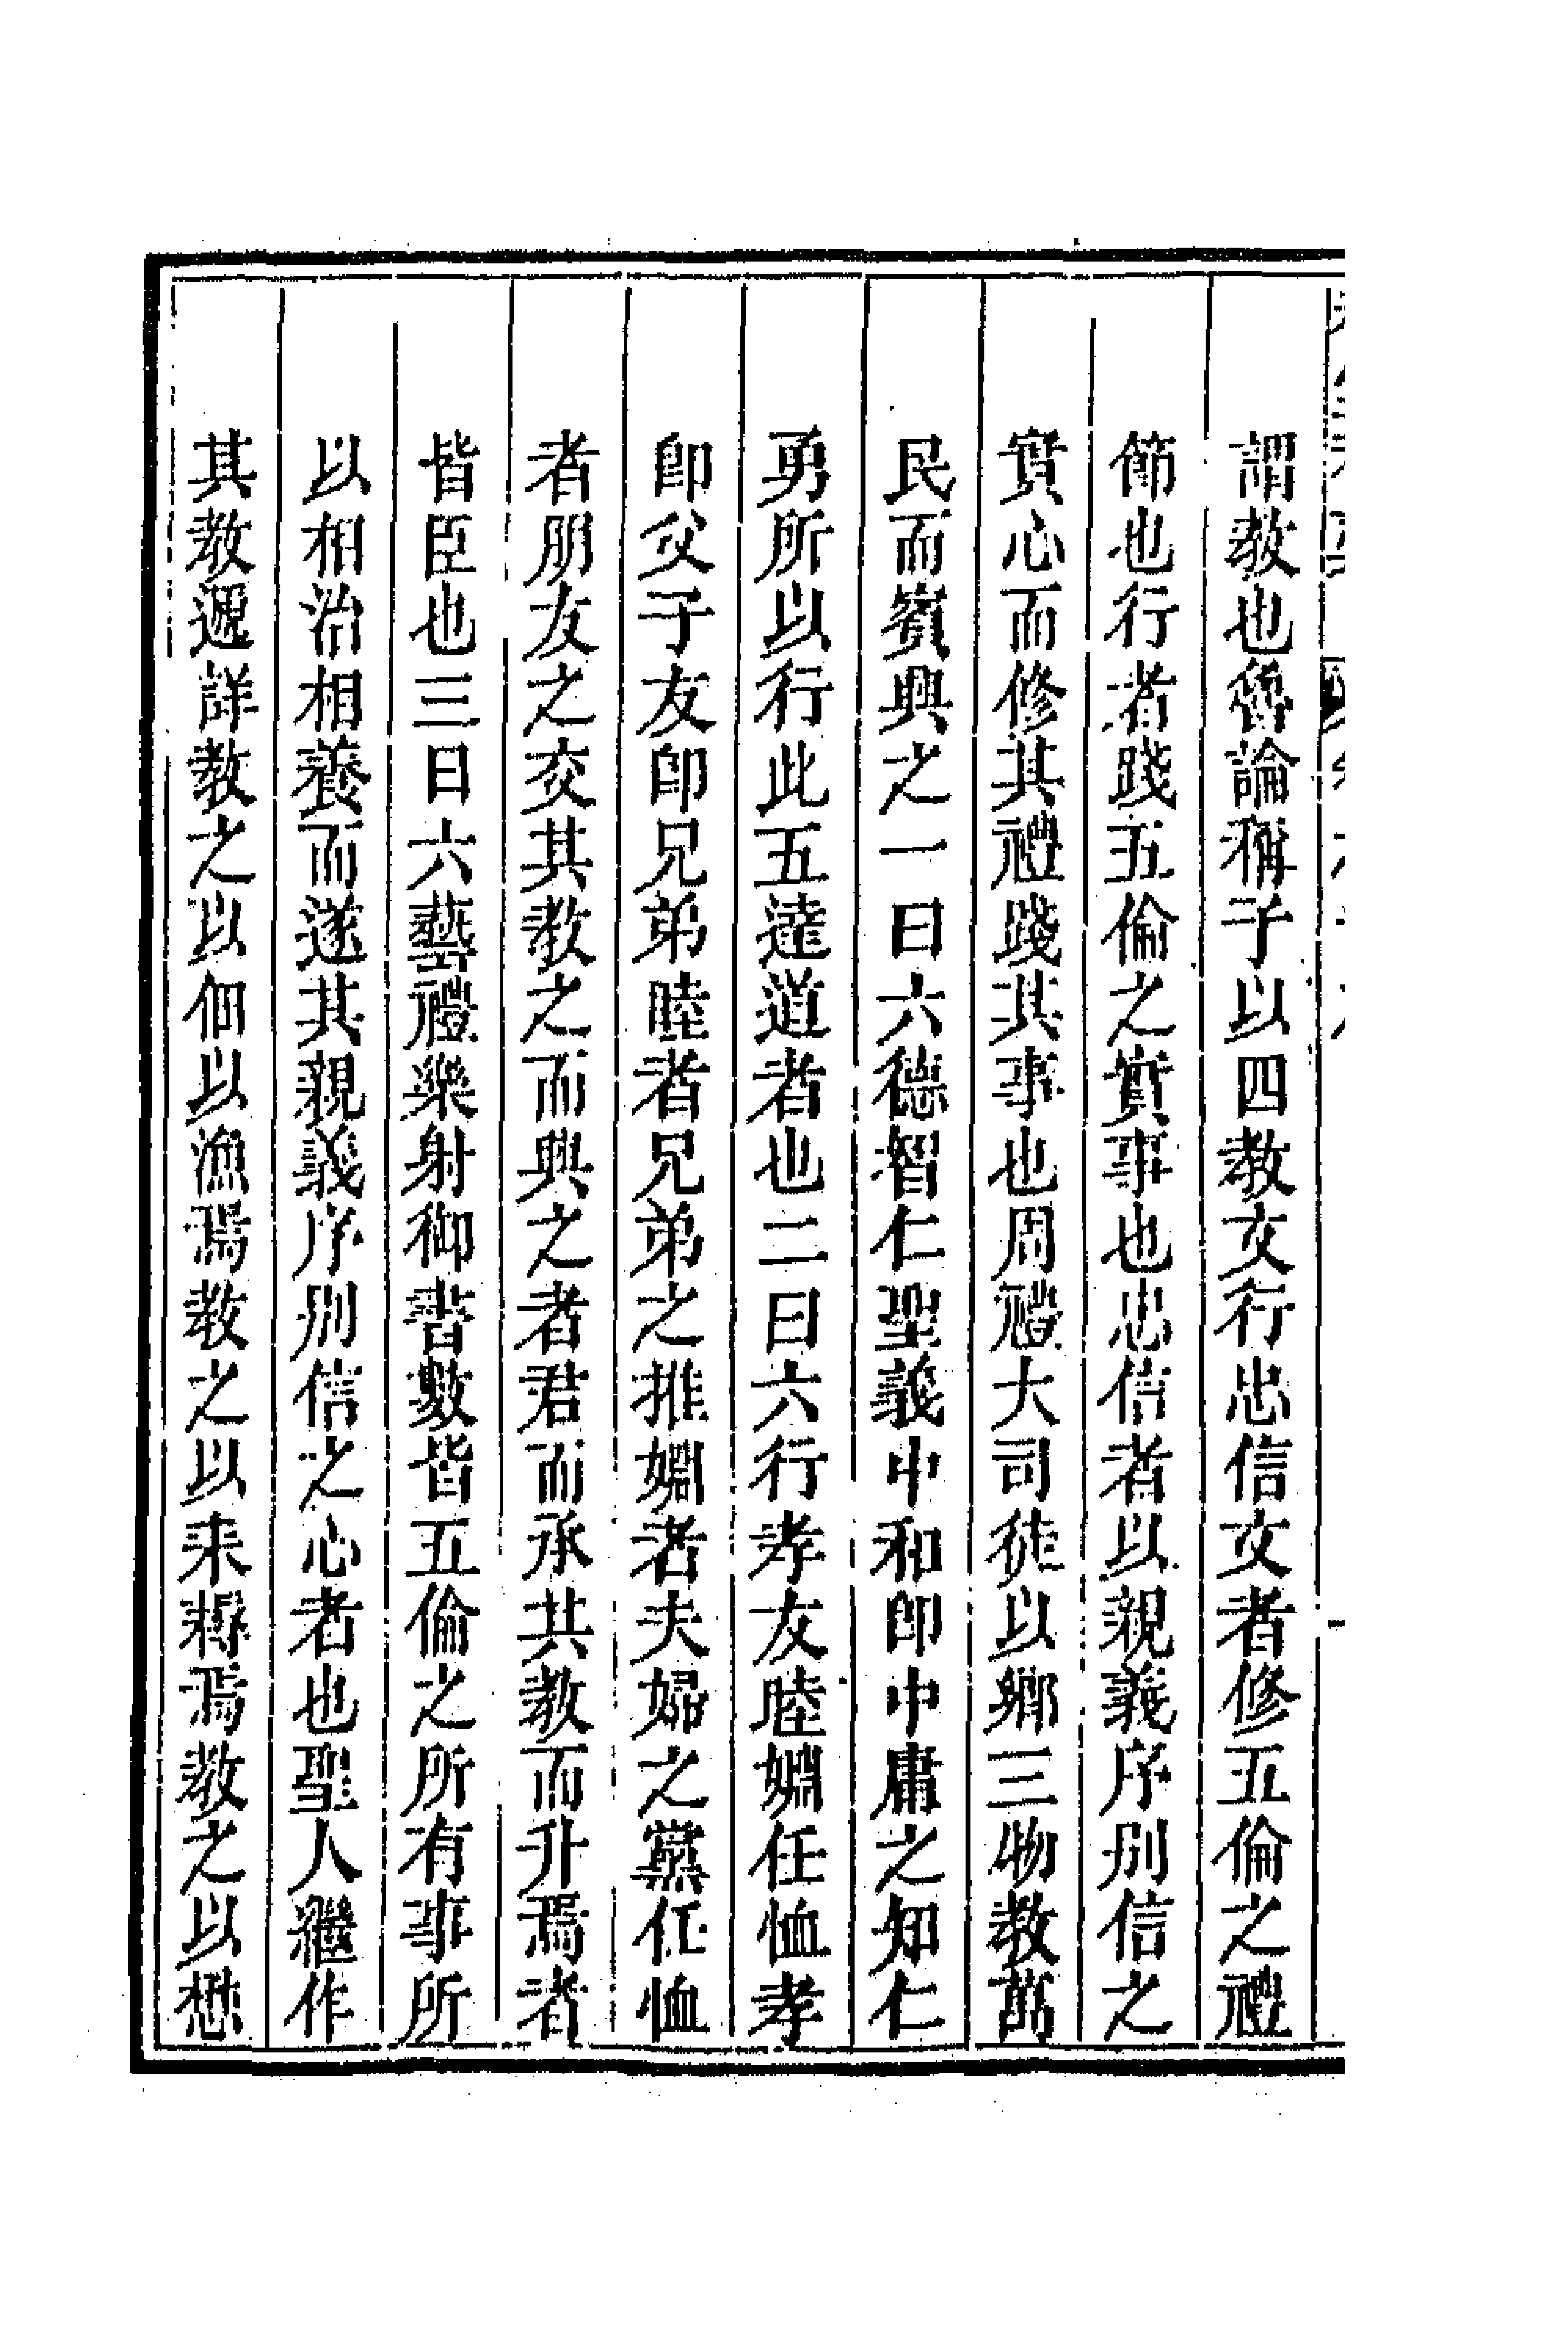 謂教也魯論稱子以四教文行忠信文者修五倫之禮
節也行者踐五倫之實事也忠信者以親義序別信之
實心而修其禮踐其事也周禮大司徒以鄉三物教萬
民而賓興之一曰六德智仁聖義中和即中庸之知仁
勇所以行此五達道者也二曰六行孝友睦婣任恤孝
即父子友即兄弟睦者兄弟之推婣者夫婦之黨任恤
者朋友之交其教之而興之者君而承其教而升焉者
皆臣也三曰六藝禮樂射御書數皆五倫之所有事所
以相治相養而遂其親義序別信之心者也聖人繼作
其教遞詳教之以佃以漁焉教之以耒耨焉教之以懋